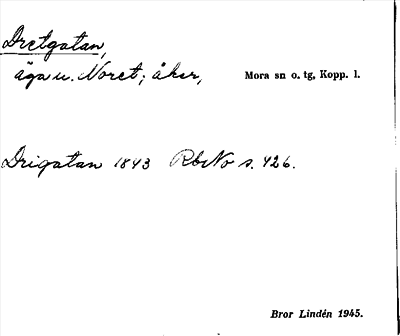 Dretgatan,
äga u. Noret; åker,
Mora sn o. tg, Kopp. l.
Drigatan 1843 RbNo s. 426.
Bror Lindén 1945.